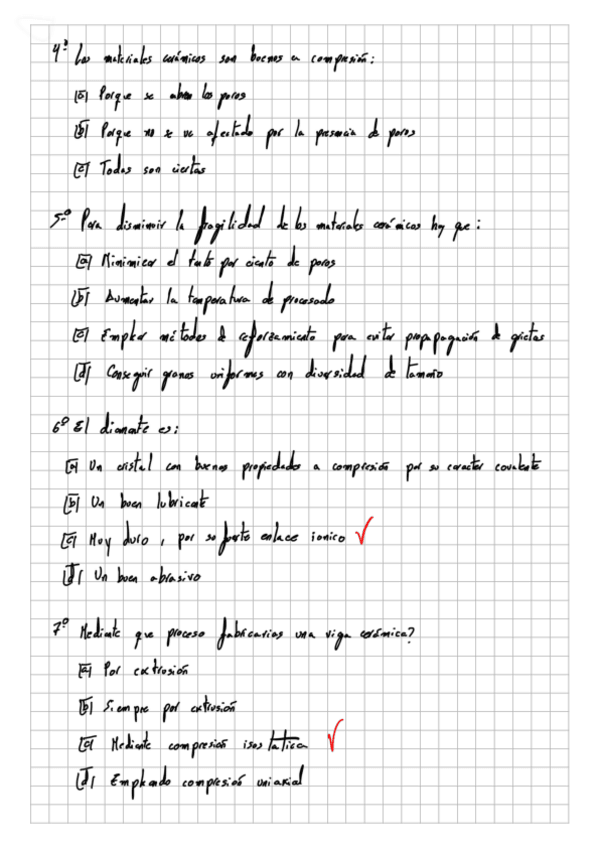 4º Los materiales cerámicos son buenos a compresión:
[a] Porque se abren los poros
[b] Porque no se ve afectado por la presencia de poros
[c] Todas son ciertas
5º Para disminuir la fragilidad de los materiales cerámicos hay que:
[a] Minimizar el tanto por ciento de poros
[b] Aumentar la temperatura de procesado
[c] Emplear métodos de reforzamiento para evitar propapagación de grietas
[d] Conseguir granos uniformes con diversidad de tamaño
6º El diamante es:
[a] Un cristal con buenas propiedades a compresión por su caracter covalente
[b] Un buen lubricante
[c] Muy duro, por su fuerte enlace ionico ✓
[d] Un buen abrasivo
7º Mediante que proceso fabricarias una viga cerámica?
[a] Por extrusión
[b] Siempre por extrusión
[c] Mediante compresión isostatica ✓
[d] Empleando compresión uniaxial